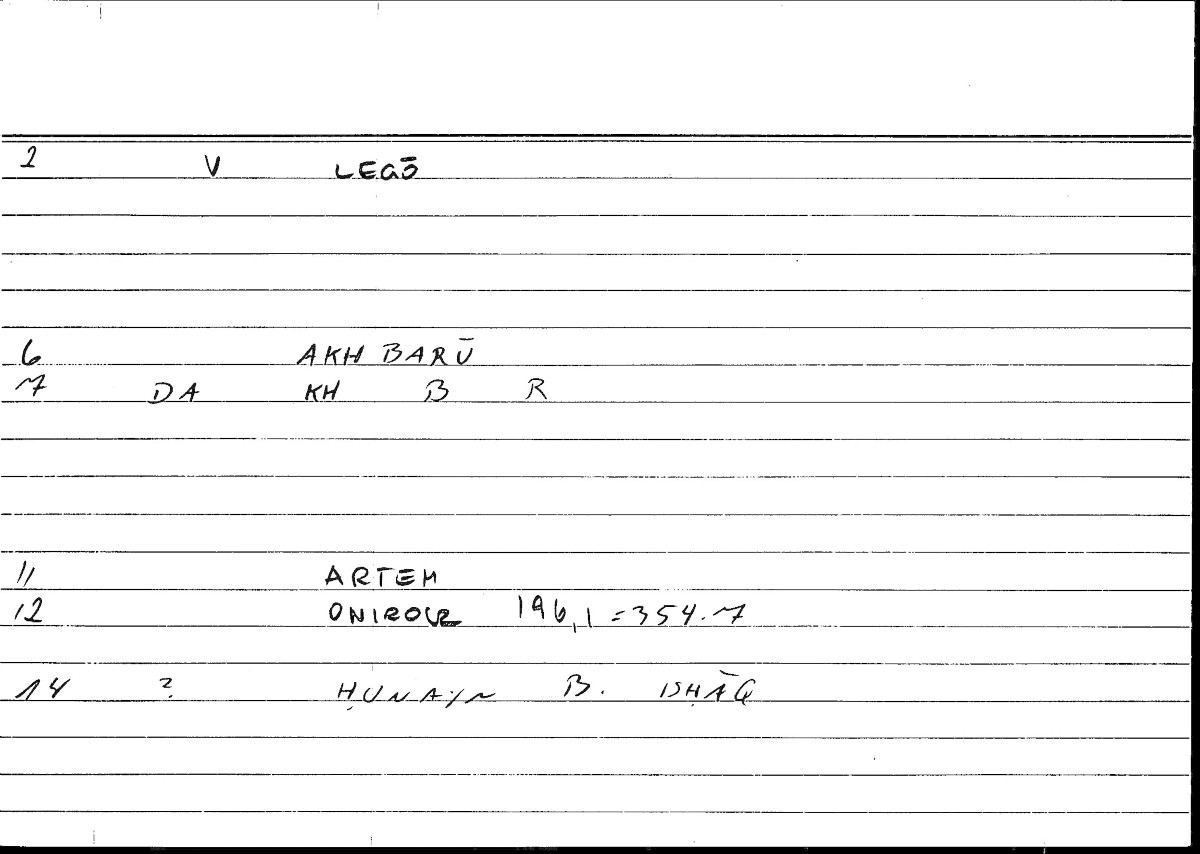 2 V LEGŌ
6 AKHBARŪ
7 DA KH B R
11 ARTEM
12 ONIROCR 196,1 = 354.7
14 ? ḤUNAYN B. ISḤĀQ